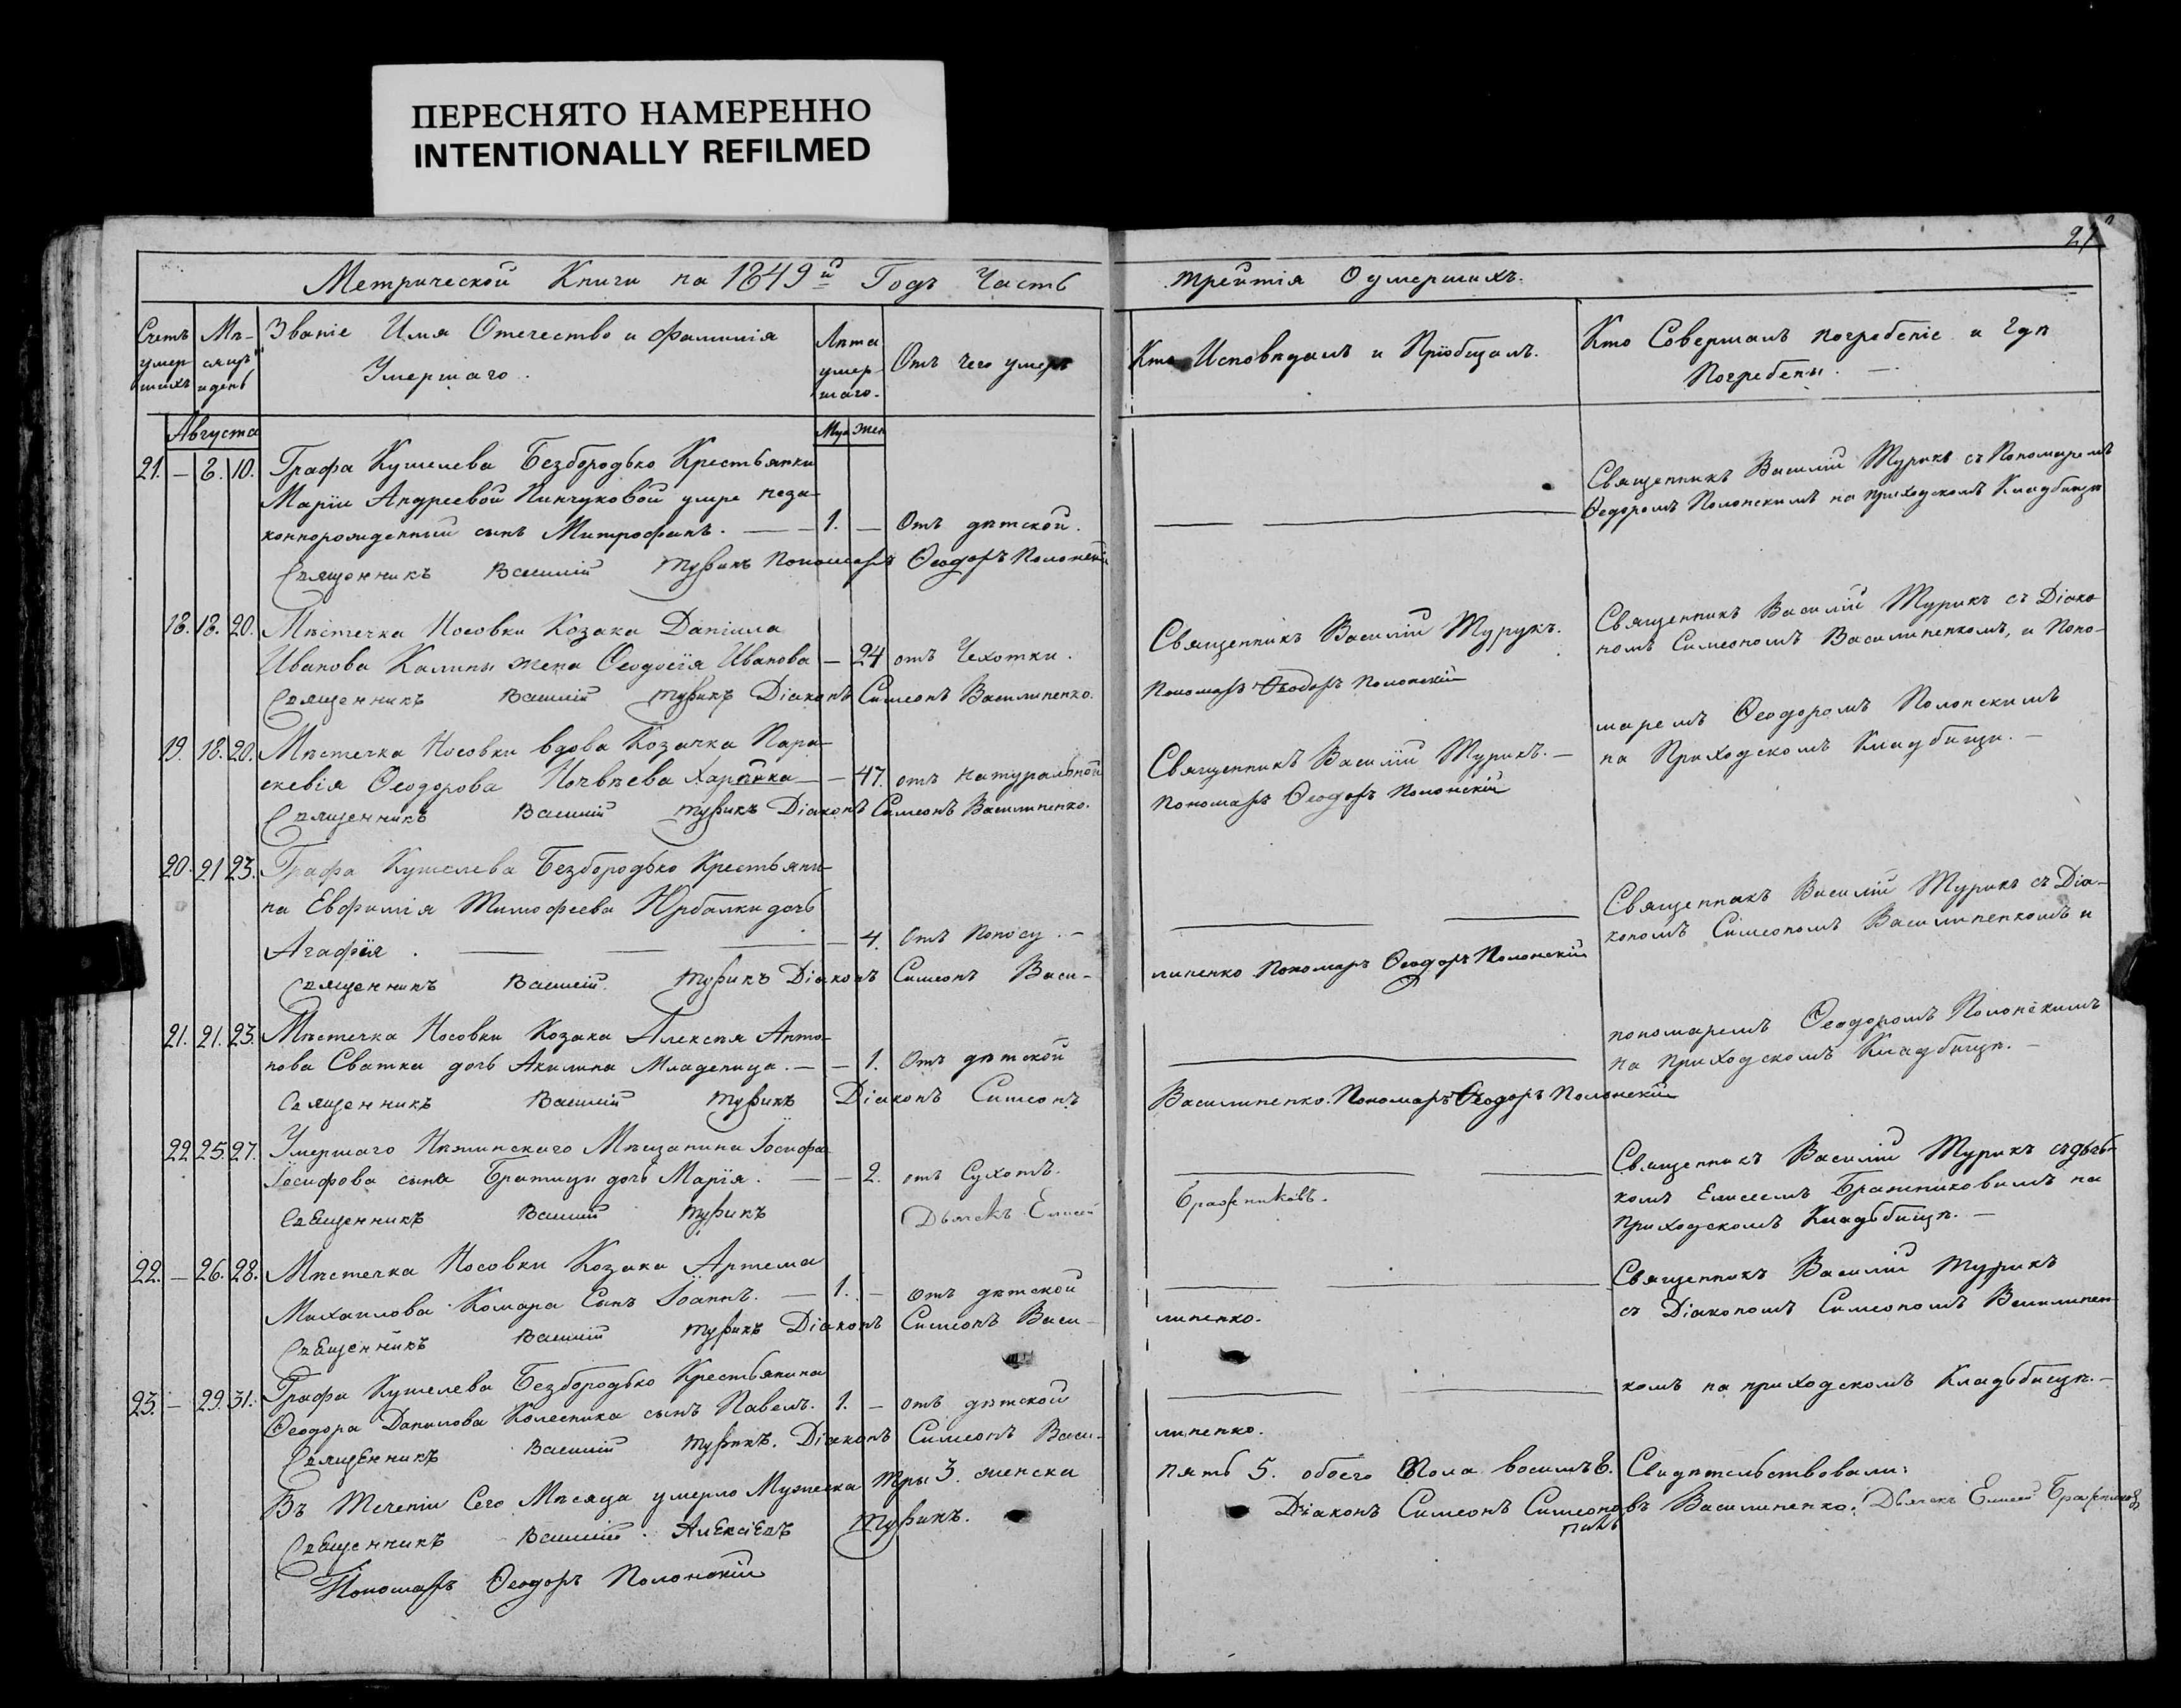 ПЕРЕСНЯТО НАМЕРЕННО
INTENTIONALLY REFILMED
21
Метрической Книги на 1849й Годъ Часть третія О умершихъ.
Счетъ умершихъ
Мѣсяцъ и день
Званіе Имя Отечество и фамилія Умершаго.
Лѣта умершаго.
Отъ чего умеръ
Кто Исповѣдалъ и Пріобщалъ.
Кто Совершалъ погребеніе и гдѣ Погребены.
Августа
Муж Жен
21. — 8. 10. Графа Кушелева Безбородько Крестьянки
Маріи Андреевой Пинчуковой умре неза-
коннорожденный сынъ Митрофанъ. — 1. — Отъ дѣтской.
Священникъ Василій Турикъ съ Пономаремъ
Ѳедоромъ Полонскимъ на приходскомъ Кладбищѣ
Священникъ Василій Турикъ Пономарь Ѳеодоръ Полонскій
18. 18. 20. Мѣстечка Носовки Козака Даніила
Иванова Калины жена Ѳеодосія Иванова — 24 отъ Чехотки.
Священникъ Василій Турукъ.
Священникъ Василій Турикъ съ Діако-
номъ Симеономъ Василиненкомъ, и Поно-
Священникъ Василій Турикъ Діаконъ Симеонъ Василиненко.
Пономарь Ѳеодоръ Полонскій
19. 18. 20. Мѣстечка Носовки вдова Козачка Пара-
скевія Ѳеодорова — 47. отъ Натуральной
Священникъ Василій Турикъ. —
маремъ Ѳеодоромъ Полонскимъ
на Приходскомъ Кладбищѣ. —
Священникъ Василій Турикъ Діаконъ Симеонъ Василиненко.
Пономарь Ѳеодоръ Полонскій
20. 21 23. Графа Кушелева Безбородько Крестьяни-
на Евфимія Тимофеева дочь
Агафія. — 4. Отъ Поносу. —
Священникъ Василій Турикъ съ Діа-
кономъ Симеономъ Василиненкомъ и
Священникъ Василій Турикъ Діаконъ Симеонъ Васи-
линенко Пономарь Ѳеодоръ Полонскій
21. 21. 23. Мѣстечка Носовки Козака Алексѣя Анто-
нова Сватка дочь Акилина Младеница. — — 1. Отъ дѣтской
пономаремъ Ѳеодоромъ Полонскимъ
на приходскомъ Кладбищѣ. —
Священникъ Василій Турикъ Діаконъ Симеонъ
Василиненко. Пономарь Ѳеодоръ Полонскій
22 25. 27. Умершаго Нѣжинскаго Мѣщанина Іосифа
Іосифова сына дочь Марія. — — 2. отъ Сухотъ.
Священникъ Василій Турикъ съ дьяч-
комъ Елисеемъ Бражниковимъ на
приходскомъ Кладьбищѣ. —
Священникъ Василій Турикъ Дьячекъ Елисей
Бражниковъ.
22. — 26. 28. Мѣстечка Носовки Козака Артема
Михаилова Комара Сынъ Іоаннъ. — 1. — отъ дѣтской
Священникъ Василій Турикъ
съ Діакономъ Симеономъ Василинен-
Священникъ Василій Турикъ Діаконъ Симеонъ Васи-
линенко.
23. — 29. 31. Графа Кушелева Безбородько Крестьянина
Ѳеодора Данилова Колесника сынъ Павелъ. 1. — отъ дѣтской
комъ на приходскомъ Кладьбищѣ. —
Священникъ Василій Турикъ. Діаконъ Симеонъ Васи-
линенко.
Въ Теченіи Сего Мѣсяца умерло Мужеска Тры 3. женска пять 5. обоего Пола восимъ 8. Свидѣтельствовали:
Священникъ Василій Алексіевъ Турикъ. Діаконъ Симеонъ Симеоновъ Василиненко. Дьячекъ Елисей Бражниковъ
Пономарь Ѳеодоръ Полонскій